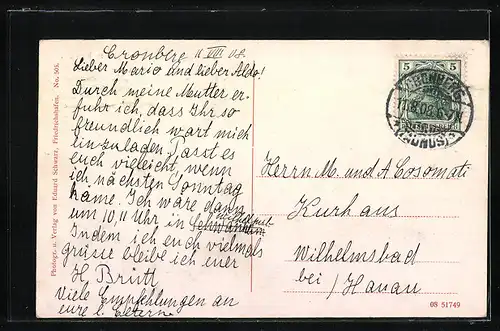 Cronberg 11 VIII 08.
Lieber Mario und lieber Aldo!
Durch meine Mutter er-
fuhr ich, dass Ihr so
freundlich wart mich
einzuladen. Passt es
euch vieleicht, wenn
ich nächsten Sonntag
käme. Ich wäre dann
um 10,11 Uhr in
Indem ich euch vielmals
grüsse bleibe ich euer
H Brütt
Viele Empfehlungen an
eure l. Eltern.
Herrn M. und A Cosomati
Kurhaus
Wilhelmsbad
bei / Hanau
Photogr. u. Verlag von Eduard Schwarz, Friedrichshafen. No. 505.
08 51749
5 5
(TAUNUS)